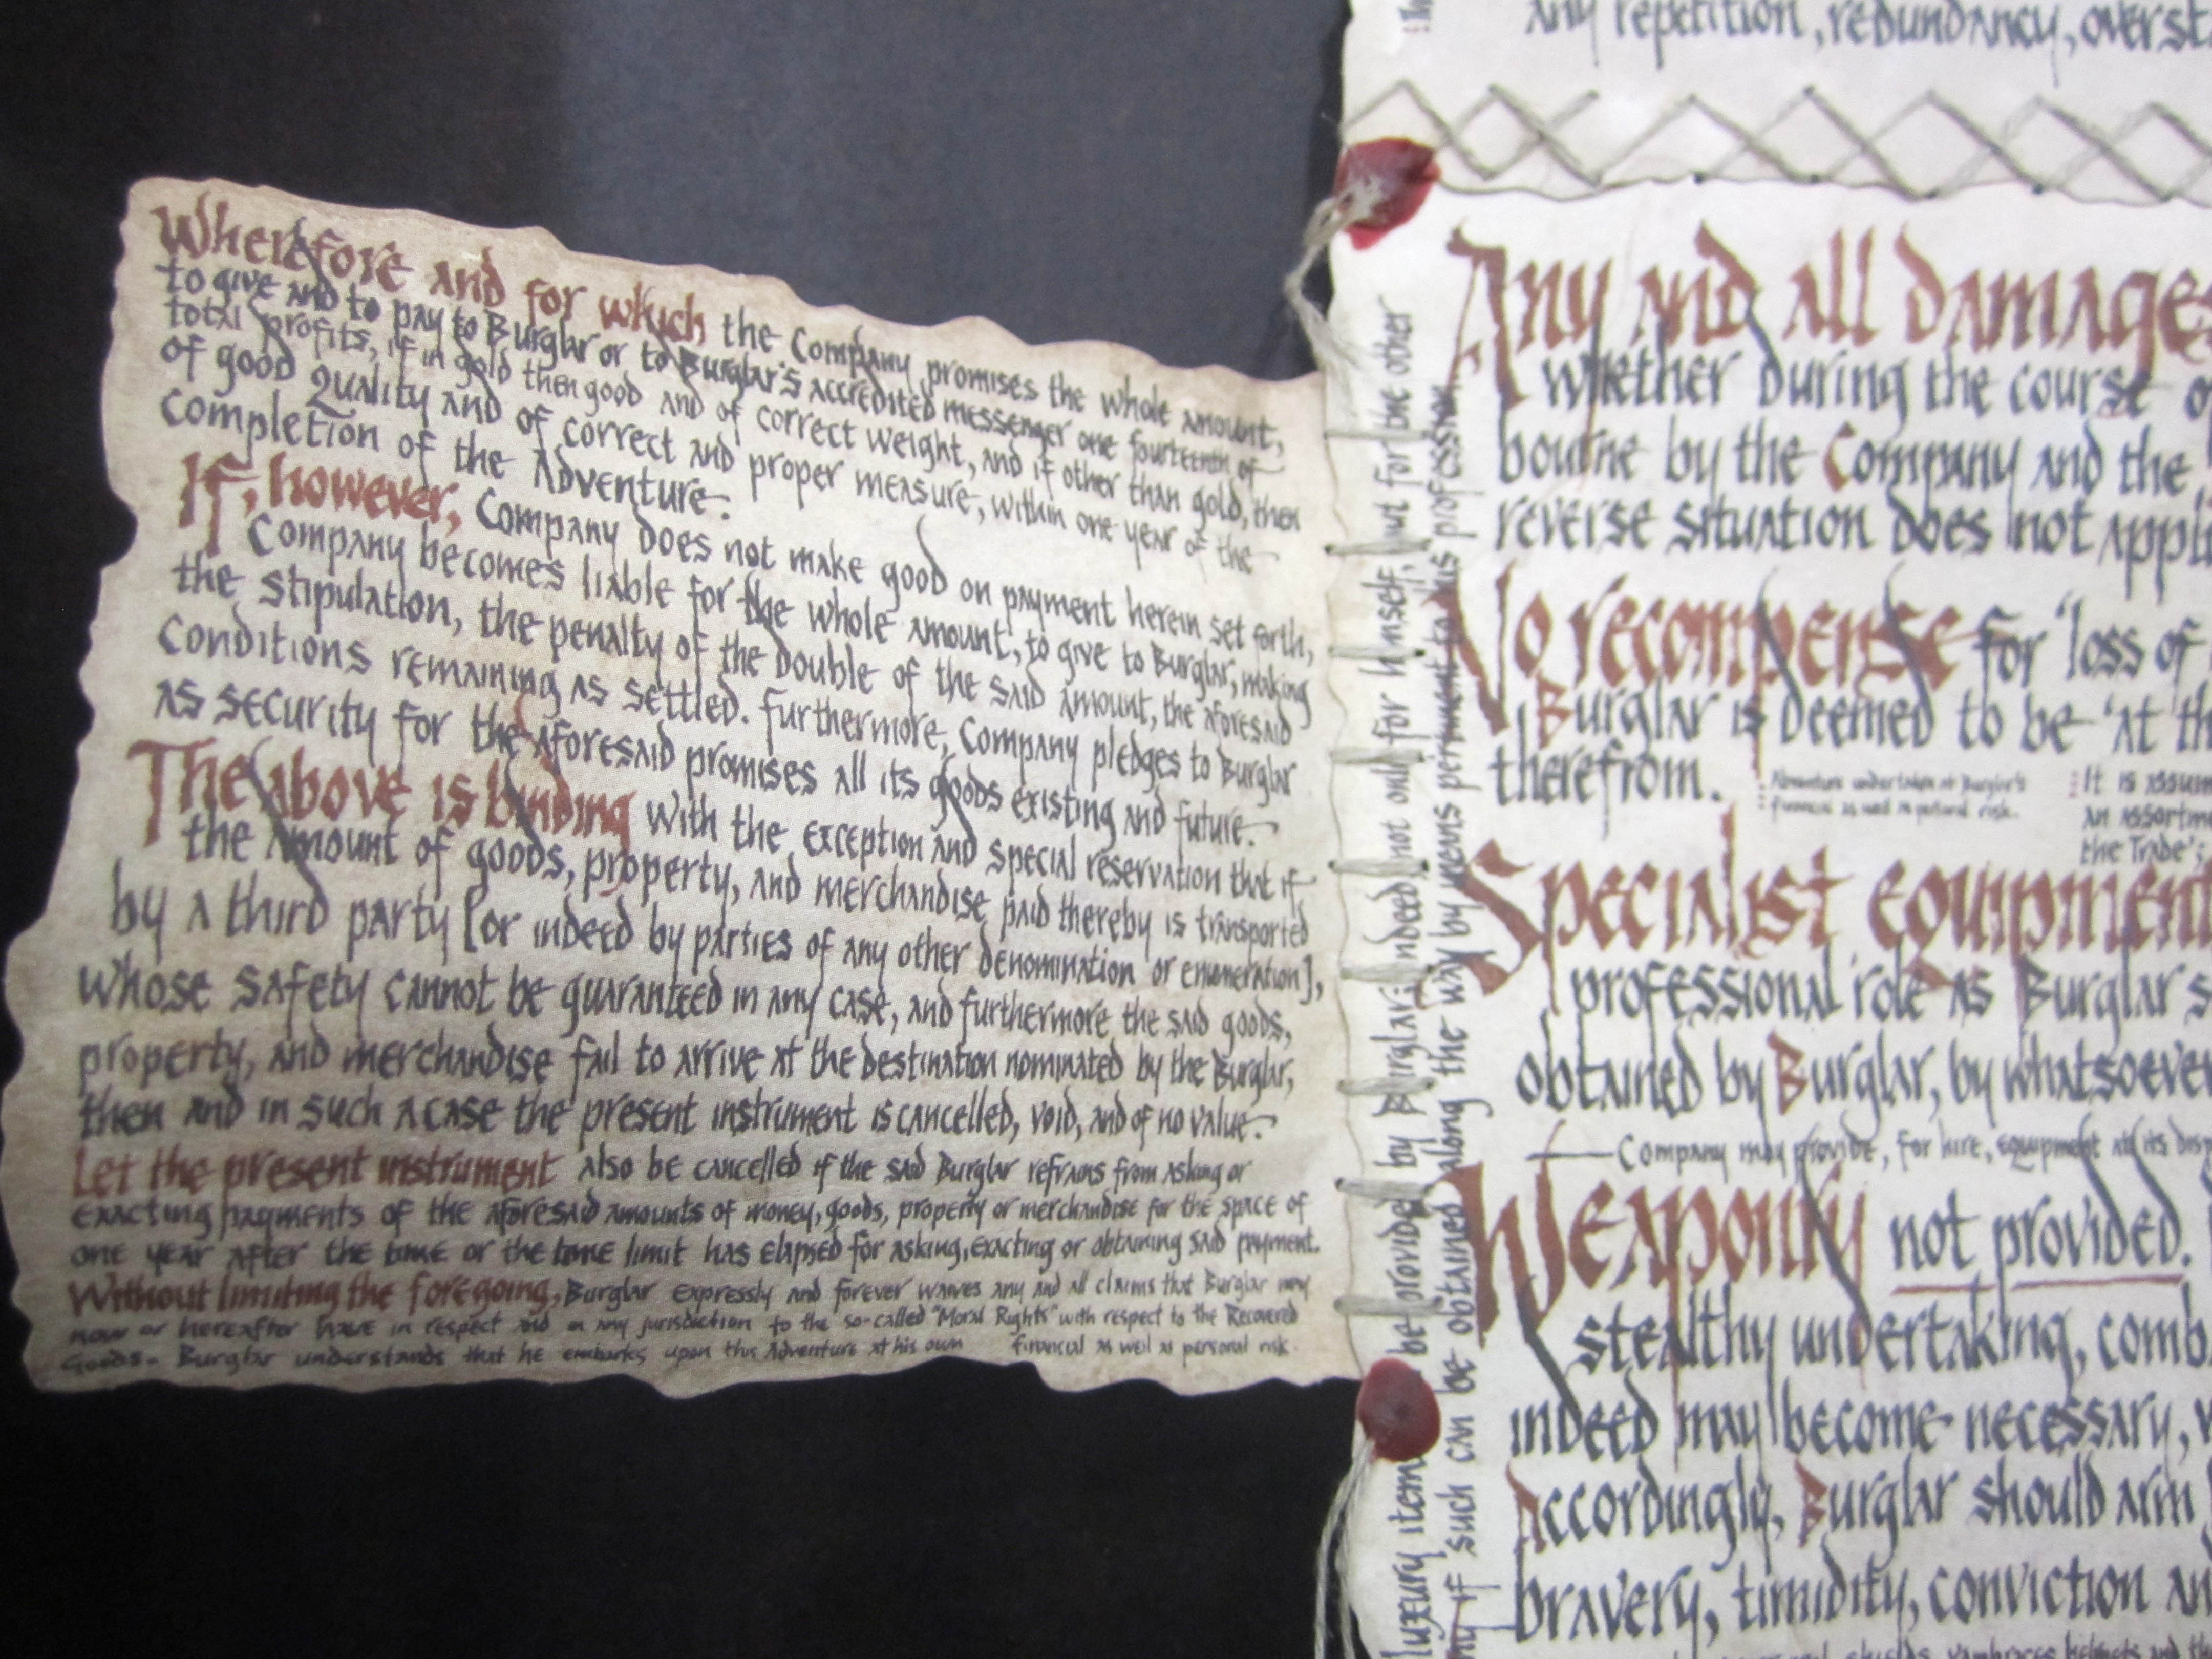 Wherefore and for which, the Company promises the whole amount,
to give and to pay to Burglar or to Burglar's accredited messenger one fourteenth of
total profits, if in gold then good and of correct weight, and if other than gold, then
of good quality and of correct and proper measure, within one year of the
completion of the Adventure.
If, however, Company does not make good on payment herein set forth,
Company becomes liable for the whole amount, to give to Burglar, making
the stipulation, the penalty of the double of the said amount, the aforesaid
conditions remaining as settled. Furthermore, Company pledges to Burglar
as security for the aforesaid promises all its goods existing and future.
The above is binding with the exception and special reservation that if
the amount of goods, property, and merchandise paid thereby is transported
by a third party [or indeed by parties of any other denomination or enumeration],
whose safety cannot be guaranteed in any case, and furthermore the said goods,
property, and merchandise fail to arrive at the destination nominated by the Burglar,
then and in such a case the present instrument is cancelled, void, and of no value.
Let the present instrument also be cancelled if the said Burglar refrains from asking or
exacting payments of the aforesaid amounts of money, goods, property or merchandise for the space of
one year after the time or the time limit has elapsed for asking, exacting or obtaining said payment.
Without limiting the foregoing, Burglar expressly and forever waives any and all claims that Burglar may
now or hereafter have in respect and in any jurisdiction to the so-called "Moral Rights" with respect to the Recovered
Goods. Burglar understands that he embarks upon this Adventure at his own financial as well as personal risk.
any repetition, redundancy, overst
Any and all damages
whether during the course o
bourne by the Company and the
reverse situation does not appl
No recompense for 'loss of
Burglar is deemed to be 'at th
therefrom.
Adventure undertaken at Burglar's
financial as well as personal risk.
It is assum
an assortme
the Trade';
Specialist equipment
professional role as Burglar s
obtained by Burglar, by whatsoever
Company may provide, for hire, equipment at its disp
Weaponry not provided.
stealthy undertaking, comb
indeed may become necessary,
Accordingly, Burglar should arm
bravery, timidity, conviction an
shields, vambraces helmets and th
luxury item be provided by Burglar; indeed not only for himself, but for the other
if such can be obtained along the way by means pertinent to his profession.